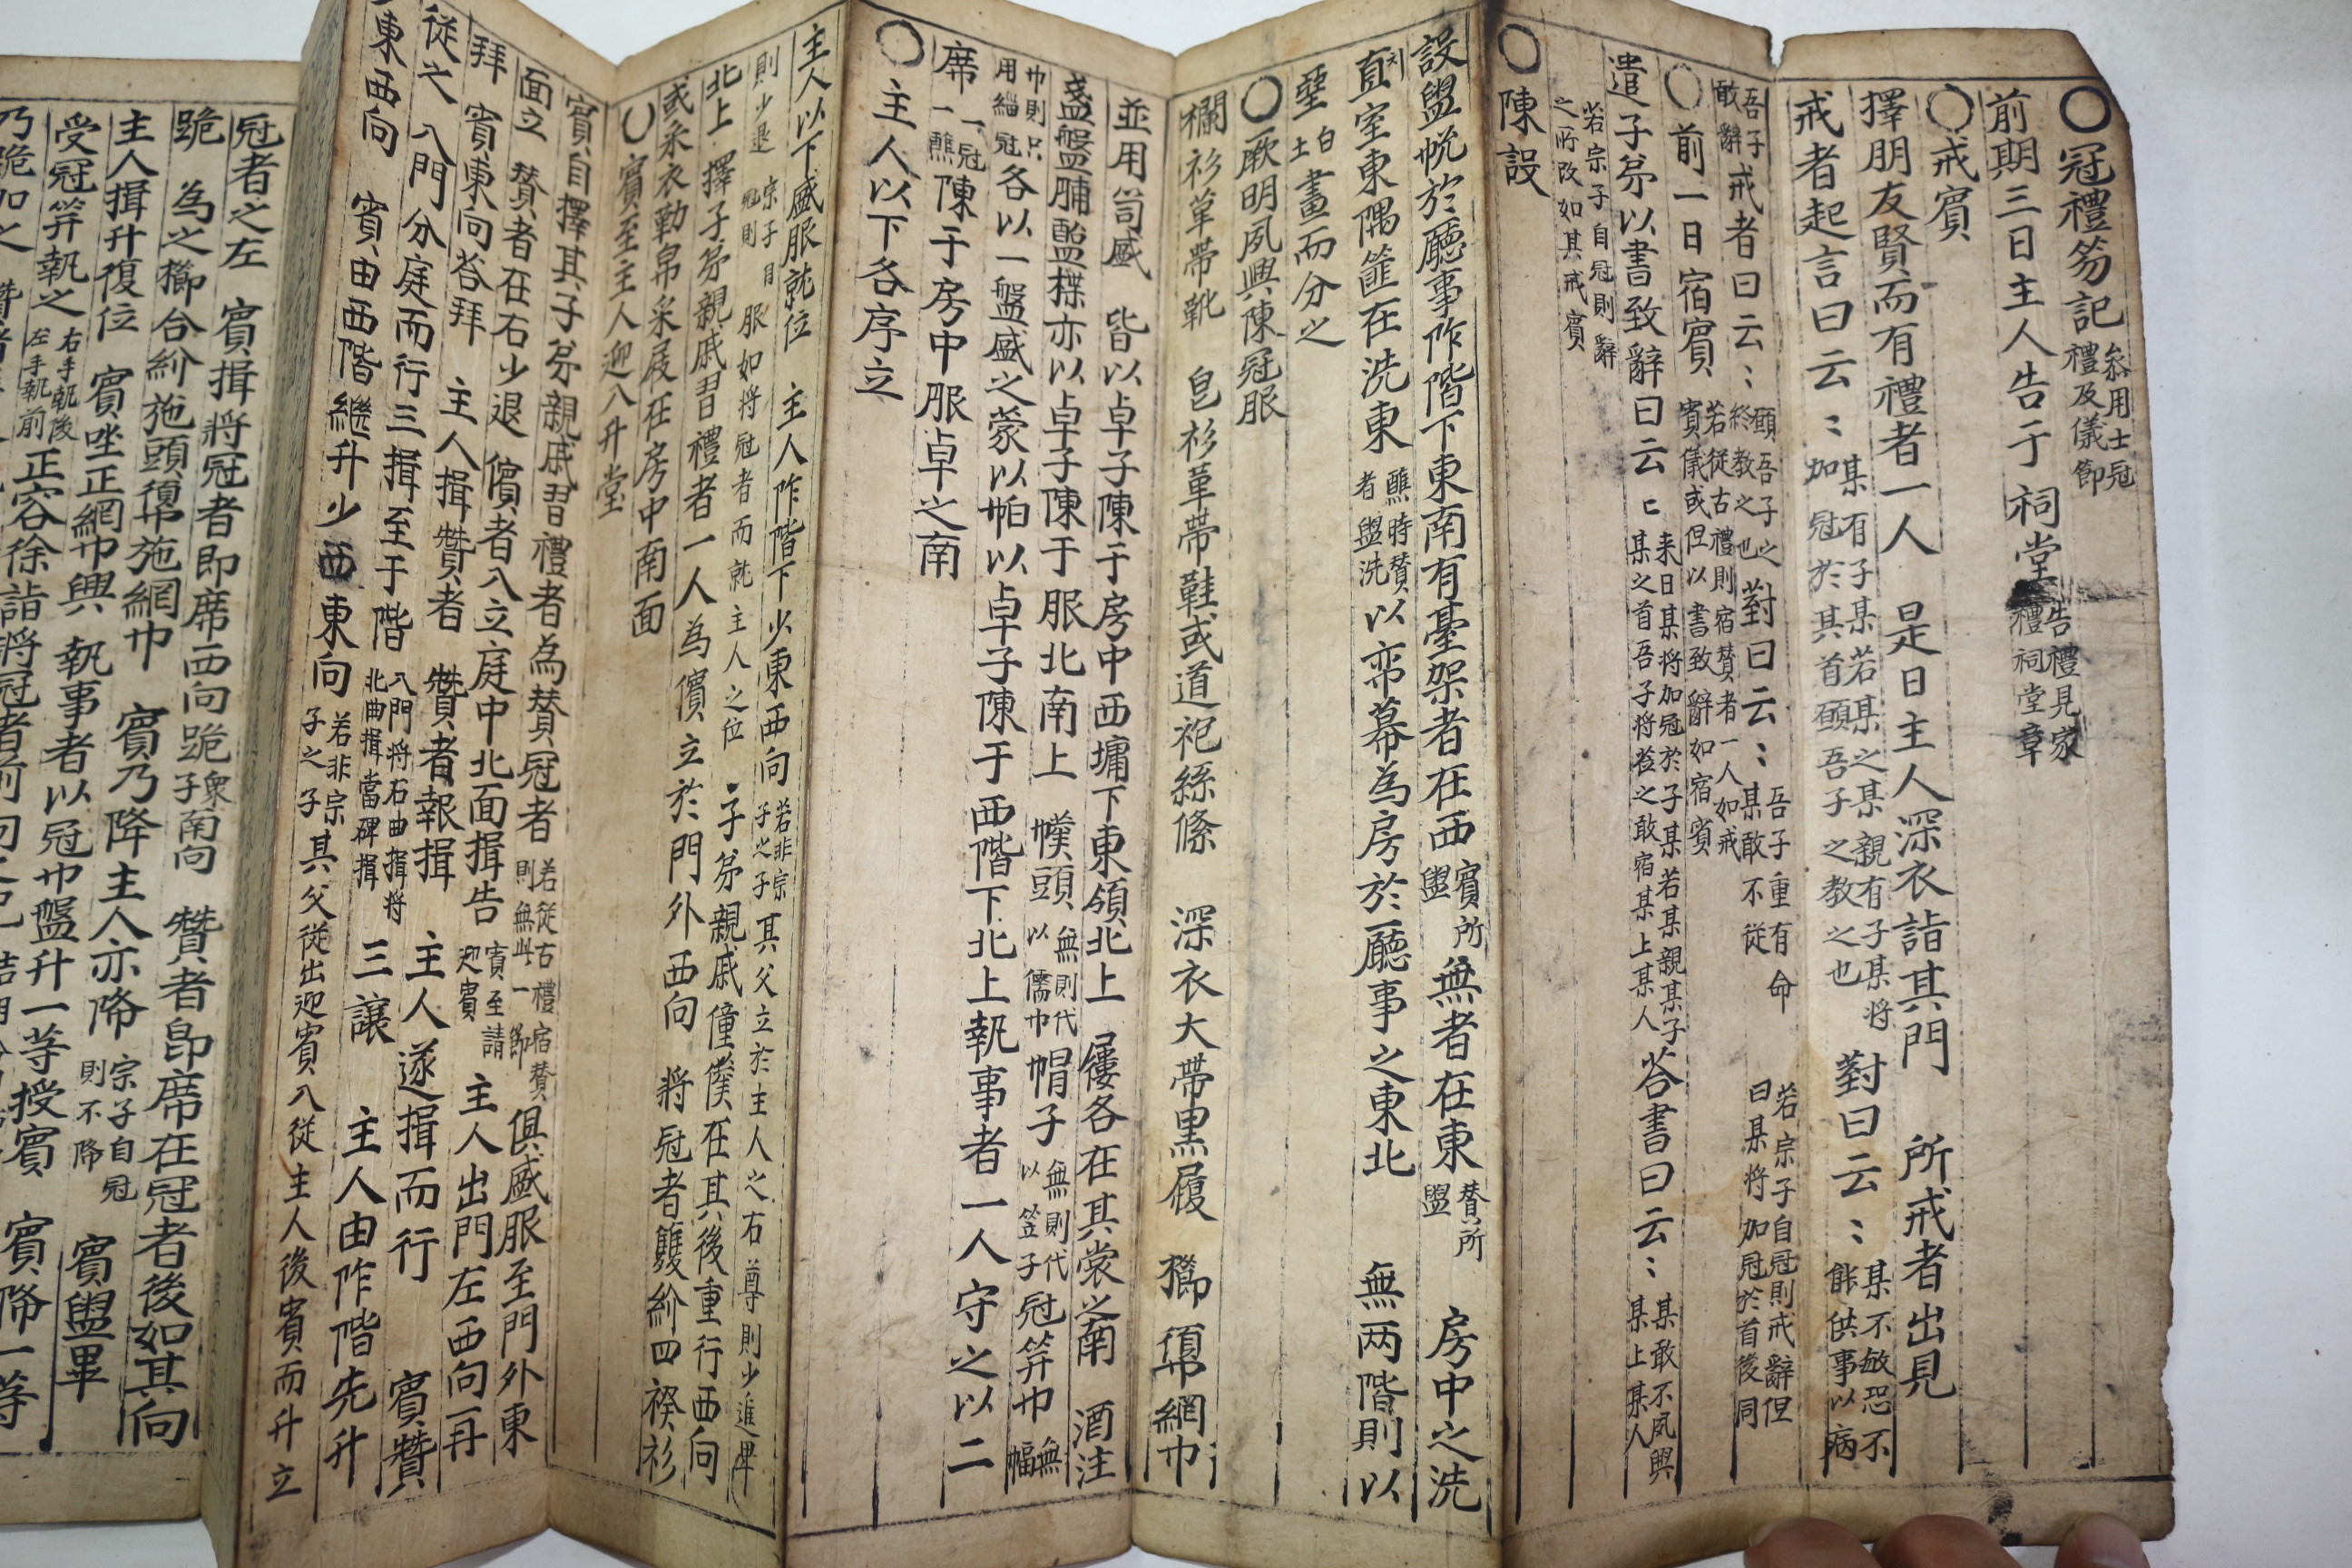 ○冠禮笏記 叅用士冠禮及儀節
前期三日主人告于 祠堂 告禮見家禮祠堂章
○戒賓
擇朋友賢而有禮者一人 是日主人深衣詣其門 所戒者出見
戒者起言曰云〻 某有子某若某之某親有子某將加冠於其首願吾子之教之也 對曰云〻 某不敏恐不能供事以病
吾子敢辭 戒者曰云〻 願吾子之終教之也 對曰云〻 吾子重有命某敢不從 若宗子自冠則戒辭但曰某將加冠於首後同
○前一日宿賓 若從古禮則宿賛者一人如戒賓儀或但以書致辭如宿賓
遣子弟以書致辭曰云〻 来日某將加冠於子某若某親某子某之首吾子將莅之敢宿某上某人 答書曰云〻 某敢不夙興某上某人
若宗子自冠則辭之所改如其戒賓
○陳設
設盥帨於廳事阼階下東南有臺架者在西 賓所盥 無者在東 賛所盥 房中之洗
直室東隅篚在洗東 醮時賛者盥洗 以帟幕為房於廳事之東北 無两階則以
堊 白土 畫而分之
○厥明夙興陳冠服
欄衫革帶靴 皂衫革帶鞋或道袍絲絛 深衣大帶黒履 櫛 䰂網巾
並用笥盛 皆以卓子陳于房中西墉下東領北上 屨各在其裳之南 酒注
盞盤脯醢楪亦以卓子陳于服北南上 幞頭 無則代以儒巾 帽子 無則代以笠子 冠笄巾 無幅
巾則只用緇冠 各以一盤盛之蒙以帕以卓子陳于西階下北上執事者一人守之以二
席 一冠一醮 陳于房中服卓之南
○主人以下各序立
主人以下盛服就位 主人阼階下少東西向 若非宗子之子 其父立於主人之右尊則少進卑
則少退 宗子自冠則 服如將冠者而就主人之位 子弟親戚僮僕在其後重行西向
北上 擇子弟親戚習禮者一人為儐立於門外西向 將冠者雙紒四䙆衫
或采衣勒帛采屐在房中南面
○賓至主人迎入升堂
賓自擇其子弟親戚習禮者為賛冠者 若從古禮宿賛則無此一節 俱盛服至門外東
面立 賛者在右少退 儐者入立庭中北面揖告 賓至請迎賓 主人出門左西向再
拜 賓東向答拜 主人揖贊者 贊者報揖 主人遂揖而行 賓贊
從之 入門分庭而行三揖至于階 入門將右曲揖將北曲揖當碑揖 三讓 主人由阼階先升
東西向 賓由西階繼升少西東向 若非宗子之子 其父從出迎賓入從主人後賓而升立
冠者之左 賓揖將冠者即席西向跪 衆子南向 贊者即席在冠者後如其向
跪 為之櫛合紒施頭䰂施網巾 賓乃降主人亦降 宗子自冠則不降 賓盥畢
主人揖升復位 賓坐正網巾興 執事者以冠巾盤升一等授賓 賓降一等
受冠笄執之 右手執後左手執前 正容徐詣將冠者前向